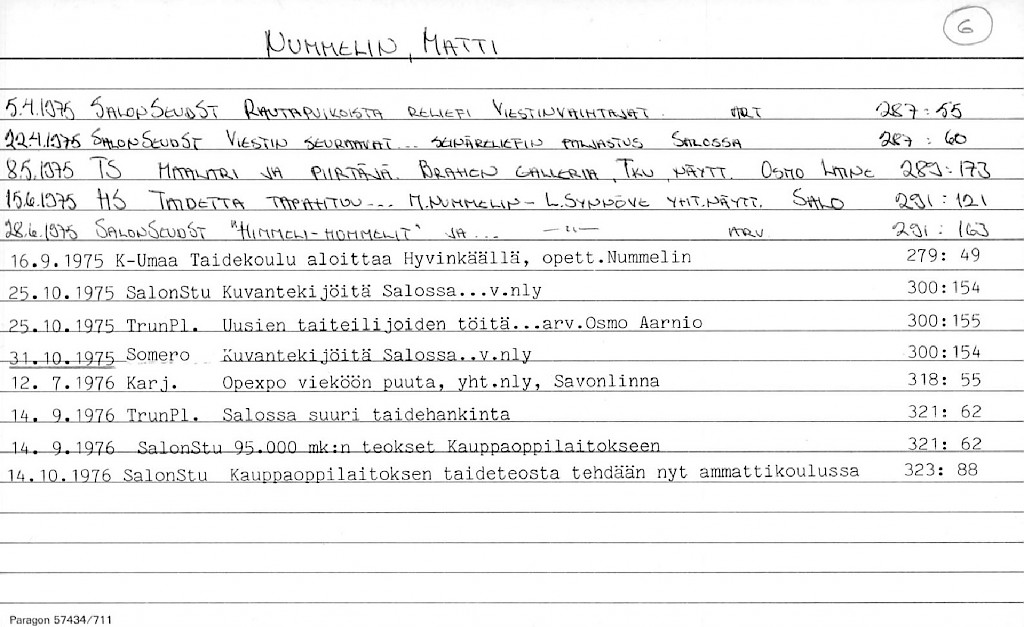 6
NUMMELIN, MATTI
5.4.1975 SALONSEUDST RAUTAPUIKOISTA RELIEFI VIESTINVAIHTAJAT. ART 287:55
22.4.1975 SALONSEUDST VIESTIN SEURAAVAT... SEINÄRELIEFIN PALJASTUS SALOSSA 287:60
8.5.1975 TS MAALARI JA PIIRTÄJÄ. BRAHEN GALLERIA, TKU, NÄYTT. OSMO LAINE 289:173
15.6.1975 HS TAIDETTA TAPAHTUU... M.NUMMELIN- L.SYNNÖVE YHT.NÄYTT. SALO 291:121
28.6.1975 SALONSEUDST "HIMMELI-HOMMELIT" JA... -"- ARV 291:163
16.9.1975 K-Umaa Taidekoulu aloittaa Hyvinkäällä, opett.Nummelin 279: 49
25.10.1975 SalonStu Kuvantekijöitä Salossa...v.nly 300:154
25.10.1975 TrunPl. Uusien taiteilijoiden töitä...arv.Osmo Aarnio 300:155
31.10.1975 Somero Kuvantekijöitä Salossa..v.nly 300:154
12. 7.1976 Karj. Opexpo vieköön puuta, yht.nly, Savonlinna 318: 55
14. 9.1976 TrunPl. Salossa suuri taidehankinta 321: 62
14. 9.1976 SalonStu 95.000 mk:n teokset Kauppaoppilaitokseen 321: 62
14.10.1976 SalonStu Kauppaoppilaitoksen taideteosta tehdään nyt ammattikoulussa 323: 88
Paragon 57434/711